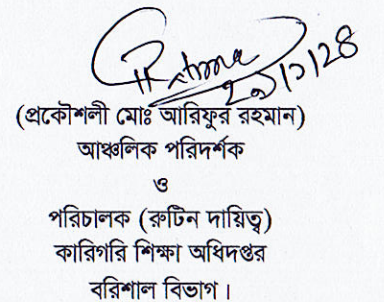 (প্রকৌশলী মোঃ আরিফুর রহমান)
আঞ্চলিক পরিদর্শক
ও
পরিচালক (রুটিন দায়িত্ব)
কারিগরি শিক্ষা অধিদপ্তর
বরিশাল বিভাগ।